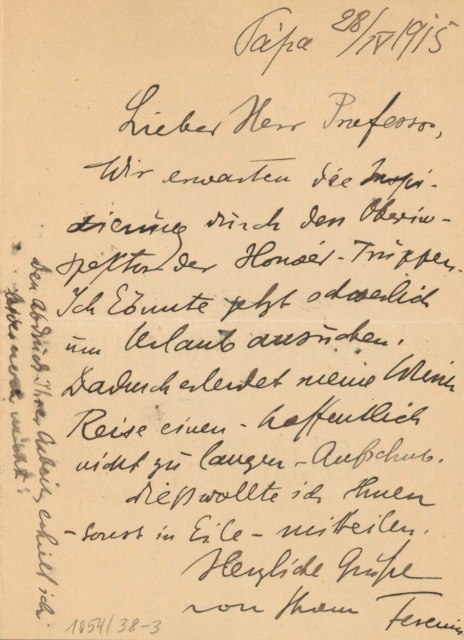 Pápa 28/IV 1915
Lieber Herr Professor,
Wir erwarten die Inspi-
zierung durch den Oberin-
spektor der Honvéd-Truppen.
Ich könnte jetzt schwerlich
um Urlaub ansuchen.
Dadurch erleidet meine Wiener
Reise einen - hoffentlich
nicht zu langen - Aufschub.
Dieß wollte ich Ihnen
- sonst in Eile - mitteilen.
Herzliche Grüße
von Ihrem Ferenczi
Den Abdruck Ihrer Arbeit erhielt ich
noch nicht!
1054/38-3